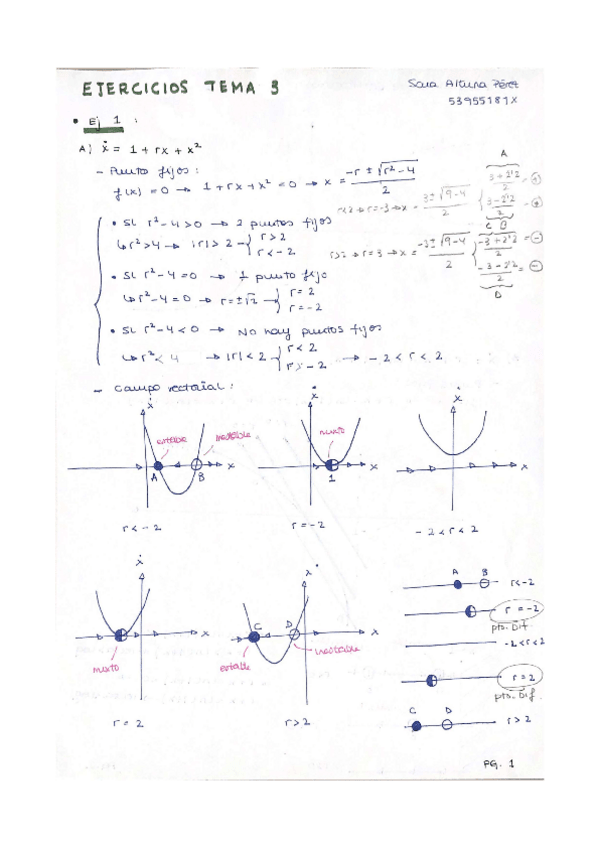 EJERCICIOS TEMA 3
Sara Altuna Pérez
53955181X
• Ej 1 :
A) ẋ = 1 + rx + x²
- Punto fijos :
f(x) = 0 → 1 + rx + x² = 0 → x = (-r ± √(r² - 4)) / 2
r<2 → r = -3 → x = (3 ± √(9 - 4)) / 2
A
(3 + 2'2) / 2 = +
(3 - 2'2) / 2 = +
B
• Si r² - 4 > 0 → 2 puntos fijos
↳ r² > 4 → |r| > 2 { r > 2
r < -2
r>2 → r = 3 → x = (-3 ± √(9 - 4)) / 2
C
(-3 + 2'2) / 2 = -
(-3 - 2'2) / 2 = -
D
• Si r² - 4 = 0 → 1 punto fijo
↳ r² - 4 = 0 → r = ±√2 { r = 2
r = -2
• Si r² - 4 < 0 → No hay puntos fijos
↳ r² < 4 → |r| < 2 { r < 2
r > -2 → -2 < r < 2
- Campo vectorial :
ẋ
estable
inestable
A
B
x
r < -2
ẋ
mixto
1
x
r = -2
ẋ
x
-2 < r < 2
ẋ
x
mixto
r = 2
ẋ
C
D
x
estable
inestable
r > 2
A B
r < -2
r = -2
pts. Dif.
-2 < r < 2
r = 2
pts. Dif.
C D
r > 2
PG. 1